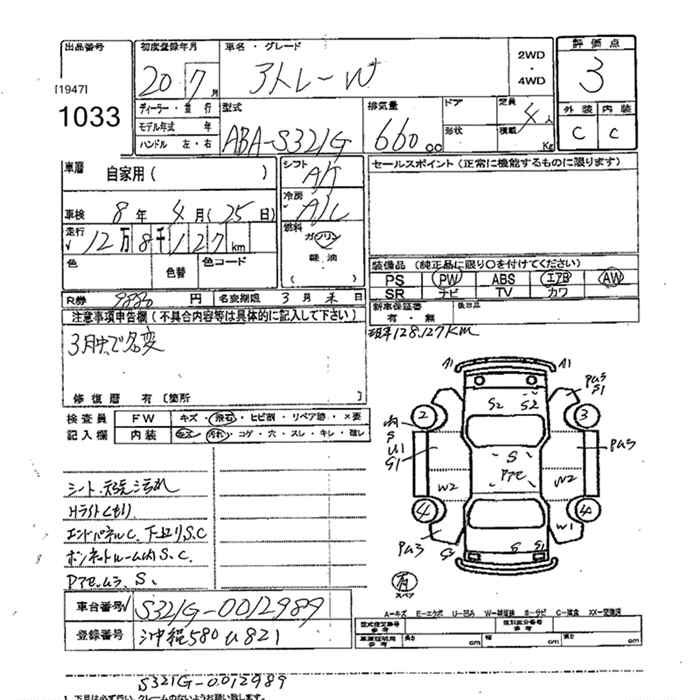 出品番号 初度登録年月 車名・グレード 2WD・4WD 評価点
[1947] 20 7月 アトレーW 3
1033 ディーラー・並行 型式 排気量 ドア 定員 4人 外装 内装
モデル年式 年 ABA-S321G 660cc 形状 積載 Kg C C
ハンドル 左・右
車歴 自家用( ) シフト A/T セールスポイント(正常に機能するものに限ります)
車検 8年4月(25日) 冷房 A/C
走行 12万8千127km 燃料 ガソリン
軽油
色 色替 色コード ( )
装備品(純正品に限り○を付けてください)
PS PW ABS エアB AW
SR ナビ TV カワ
R券 9880円 名変期限 3月末日 新車保証書 後日品
有・無
注意事項申告欄(不具合内容等は具体的に記入して下さい)
現车128.127KM
3月中で名変
修復歴 有〔箇所 〕
検査員 FW キズ・飛石・ヒビ割・リペア跡・×要
記入欄 内装 キズ・汚れ・コゲ・穴・スレ・キレ・
A1 A1
S2 S2
2 3
S
U1
S1
S
アセ
W2 W2
4 4
W1
S S1
シート・天張汚れ
Hライトくもり
エンドパネルC、下廻りS.C
ボンネットルーム内S.C.
アセ、ムラ、S、
有
スペア
A-キズ E-エクボ U-凹み S-サビ C-腐食 XX-交換済
車台番号 S321G-0012989
登録番号 沖縄580 u821
長さ cm 幅 cm 高さ cm
S321G-0012989